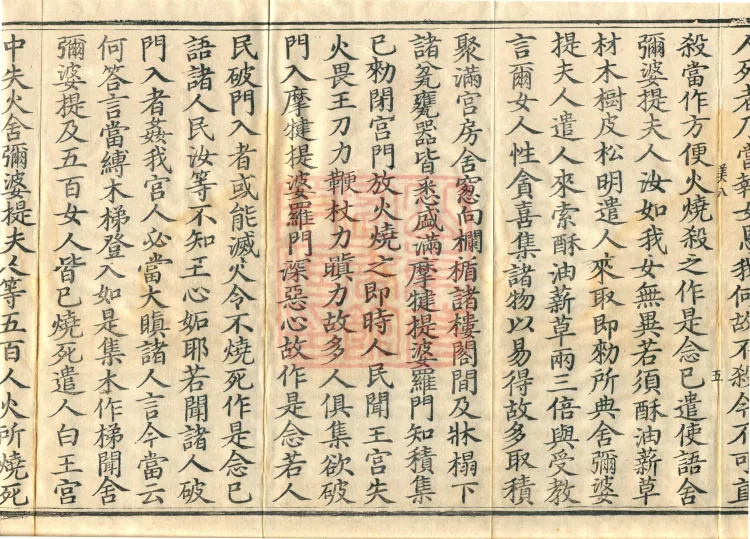 殺當作方便火燒殺之作是念已遣使語舍
彌婆提夫人汝如我女無異若須酥油薪草
材木樹皮松明遣人來取即勑所典舍彌婆
提夫人遣人來索酥油薪草兩三倍與受教
言爾女人性貪喜集諸物以易得故多取積
聚滿宮房舍窻向欄楯諸樓閣間及牀榻下
諸瓮甕器皆悉盛滿摩揵提婆羅門知積集
已勑閉宮門放火燒之即時人民聞王宮失
火畏王刀力鞭杖力瞋力故多人俱集欲破
門入摩揵提婆羅門深惡心故作是念若人
民破門入者或能滅火令不燒死作是念已
語諸人民汝等不知王心妬耶若聞諸人破
門入者姦我宮人必當大瞋諸人言今當云
何答言當縛木梯登入如是集木作梯聞舍
彌婆提及五百女人皆已燒死遣人白王宮
中失火舍彌婆提夫人等五百人火所燒死
美八
五